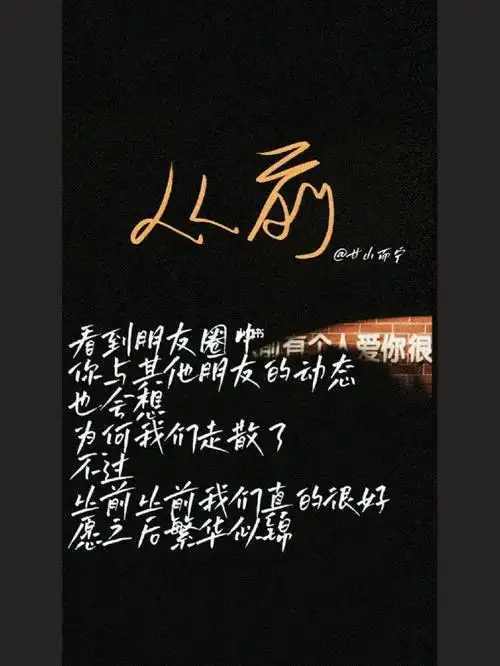 从前
@廿山而宁
看到朋友圈
前有个人爱你很
你与其他朋友的动态
也会想
为何我们走散了
不过
从前从前我们真的很好
愿之后繁华似锦